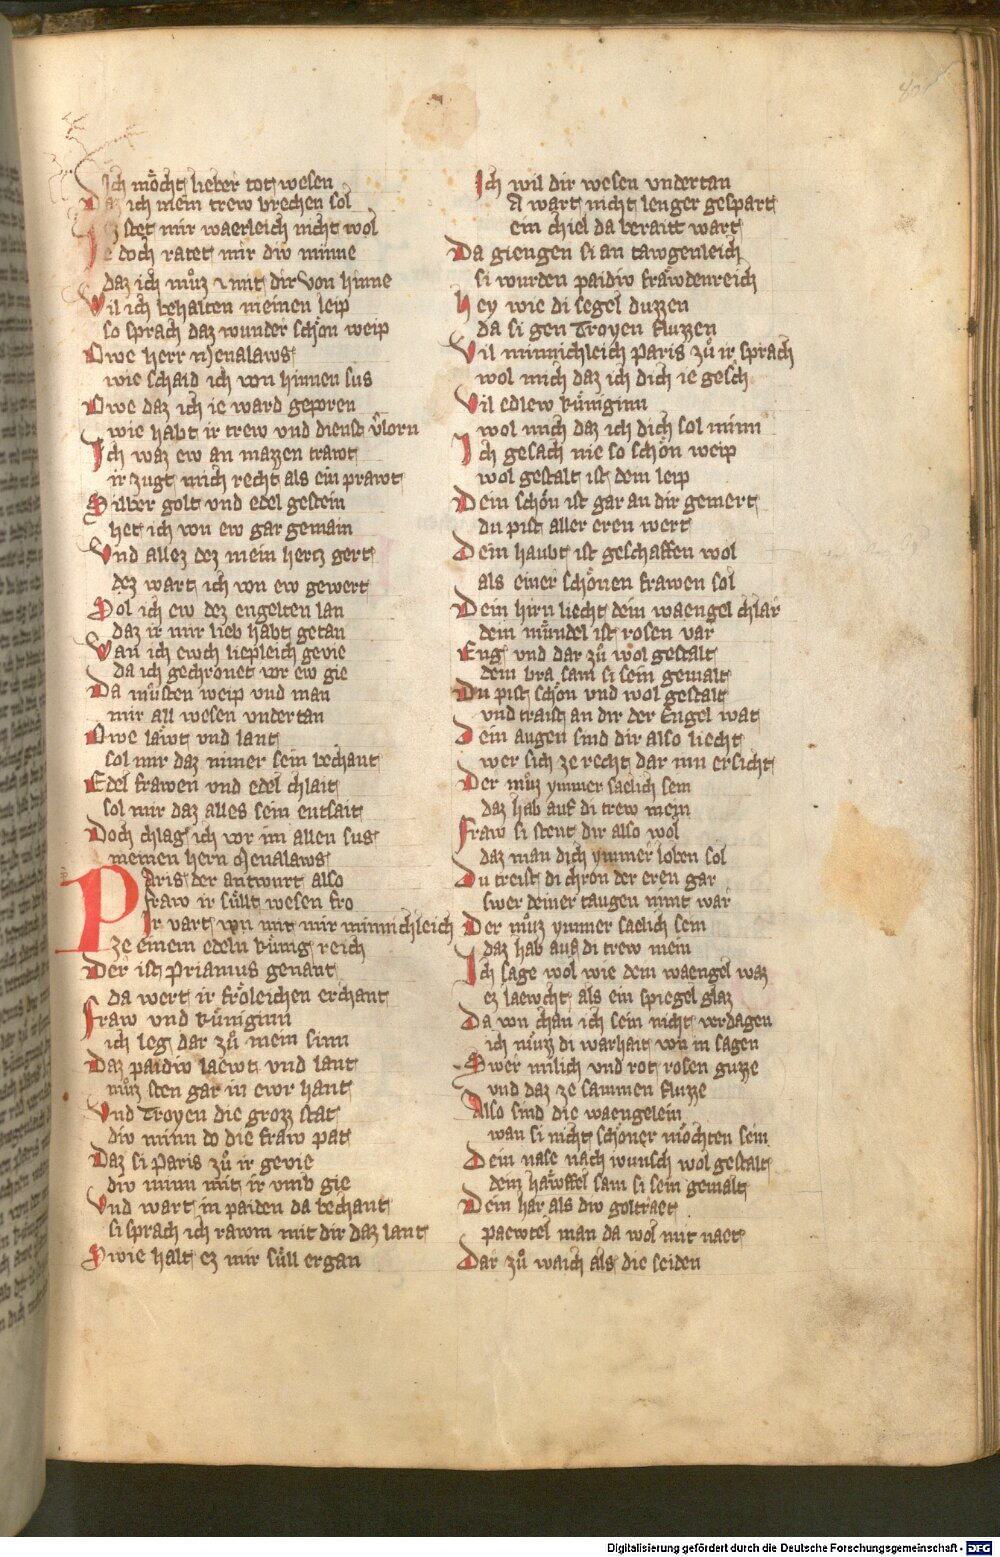 80r
Ich möcht lieber tot wesen
Daz ich mein trew brechen sol
Ez stet mir waerleich nicht wol
Je doch ratet mir div minne
daz ich muͦz mit dir von hinne
Wil ich behalten meinen leip
so sprach daz wunder schön weip
Owe herr Menalaws
wie schaid ich von hinnen sus
Owe daz ich ie ward geporen
wie habt ir trew vnd dienst v̂lorn
Ich waz ew an mazzen trawt
ir zugt mich recht als ein prawt
Silber golt vnd edel gestein
het ich von ew gar gemain
Vnd allez dez mein hertz gert
dez wart ich von ew gewert
Sol ich ew dez engelten lan
daz ir mir lieb habt getan
Wan ich ewch liepleich gevie
da ich gechrönet vor ew gie
Da müsten weip vnd man
mir all wesen vndertan
Owe läwt vnd lant
sol mir daz nimer sein bechant
Edel frawen vnd edel chlait
sol mir daz alles sein entsait
Doch chlag ich vor im allen sus
meinen hern Menalaws
Paris der antwurt also
fraw ir süllt wesen fro
Ir vart von mir mit minnichleich
ze einem edeln künig reich
Der ist Priamus genant
da wert ir fröleichen erchant
fraw vnd küniginn
ich leg dar zuͦ mein sinn
Daz paidiv laewt vnd lant
muͦz sten gar in ewr hant
Vnd Troyen die grozz stat
div minn do die fraw pat
Daz si Paris zuͦ ir gevie
div minn mit ir vmb gie
Vnd wart in paiden da bechant
si sprach ich rawm mit dir daz lant
Swie halt ez mir süll ergan
Ich wil dir wesen vndertan
A wart nicht lenger gespart
ein chiel da beraitt wart
Da giengen si an tawgenleich
si wurden paidiv fräwdenreich
hey wie di segel duzzen
da si gen Troyen fluzzen
Vil minnichleich Paris zuͦ ir sprach
wol mich daz ich dich ie gesch
Vil edlew küniginn
wol mich daz ich dich sol minn
Ich gesach nie so schön weip
wol gestalt ist dein leip
Dein schön ist gar an dir gemert
du pist aller eren wert
Dein haubt ist geschaffen wol
als einer schönen frawen sol
Dein hirn liecht dein waengel chlar
dein mündel ist rosen var
Eng vnd dar zuͦ wol gestalt
dein bra sam si sein gemalt
Du pist schön vnd wol gestalt
vnd traist an dir der Engel wat
Dein augen sind dir also liecht
wer sich ze recht dar inn ersicht
Der muͦz ymmer saelich sein
daz hab auf di trew mein
fraw si stent dir also wol
daz man dich ymmer loben sol
Du treist di chron der eren gar
swer deiner taugen nimt war
Der muͦz ymmer saelich sein
daz hab auf di trew mein
Ich sage wol wie dein waengel waz
ez laewcht als ein spiegel glaz
Da von chan ich sein nicht verdagen
ich muͦz di warhait von in sagen
Swer milich vnd rot rosen guzze
vnd daz ze sammen fluzze
Also sind die waengelein
wan si nicht schöner möchten sein
Dein nase nach wunsch wol gestalt
dein häwffel sam si sein gemalt
Dein har als div goltraet
paewtel man da wol mit naet
Dar zuͦ waich als die seiden
Digitalisierung gefördert durch die Deutsche Forschungsgemeinschaft - DFG